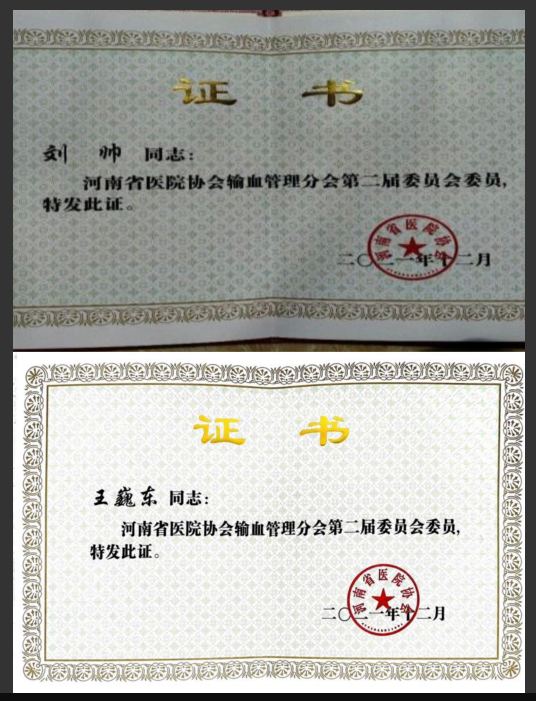 证 书
刘 帅 同志：
河南省医院协会输血管理分会第二届委员会委员，
特发此证。
河南省医院协会
二〇二一年十二月
证 书
王巍东 同志：
河南省医院协会输血管理分会第二届委员会委员，
特发此证。
河南省医院协会
二〇二一年十二月